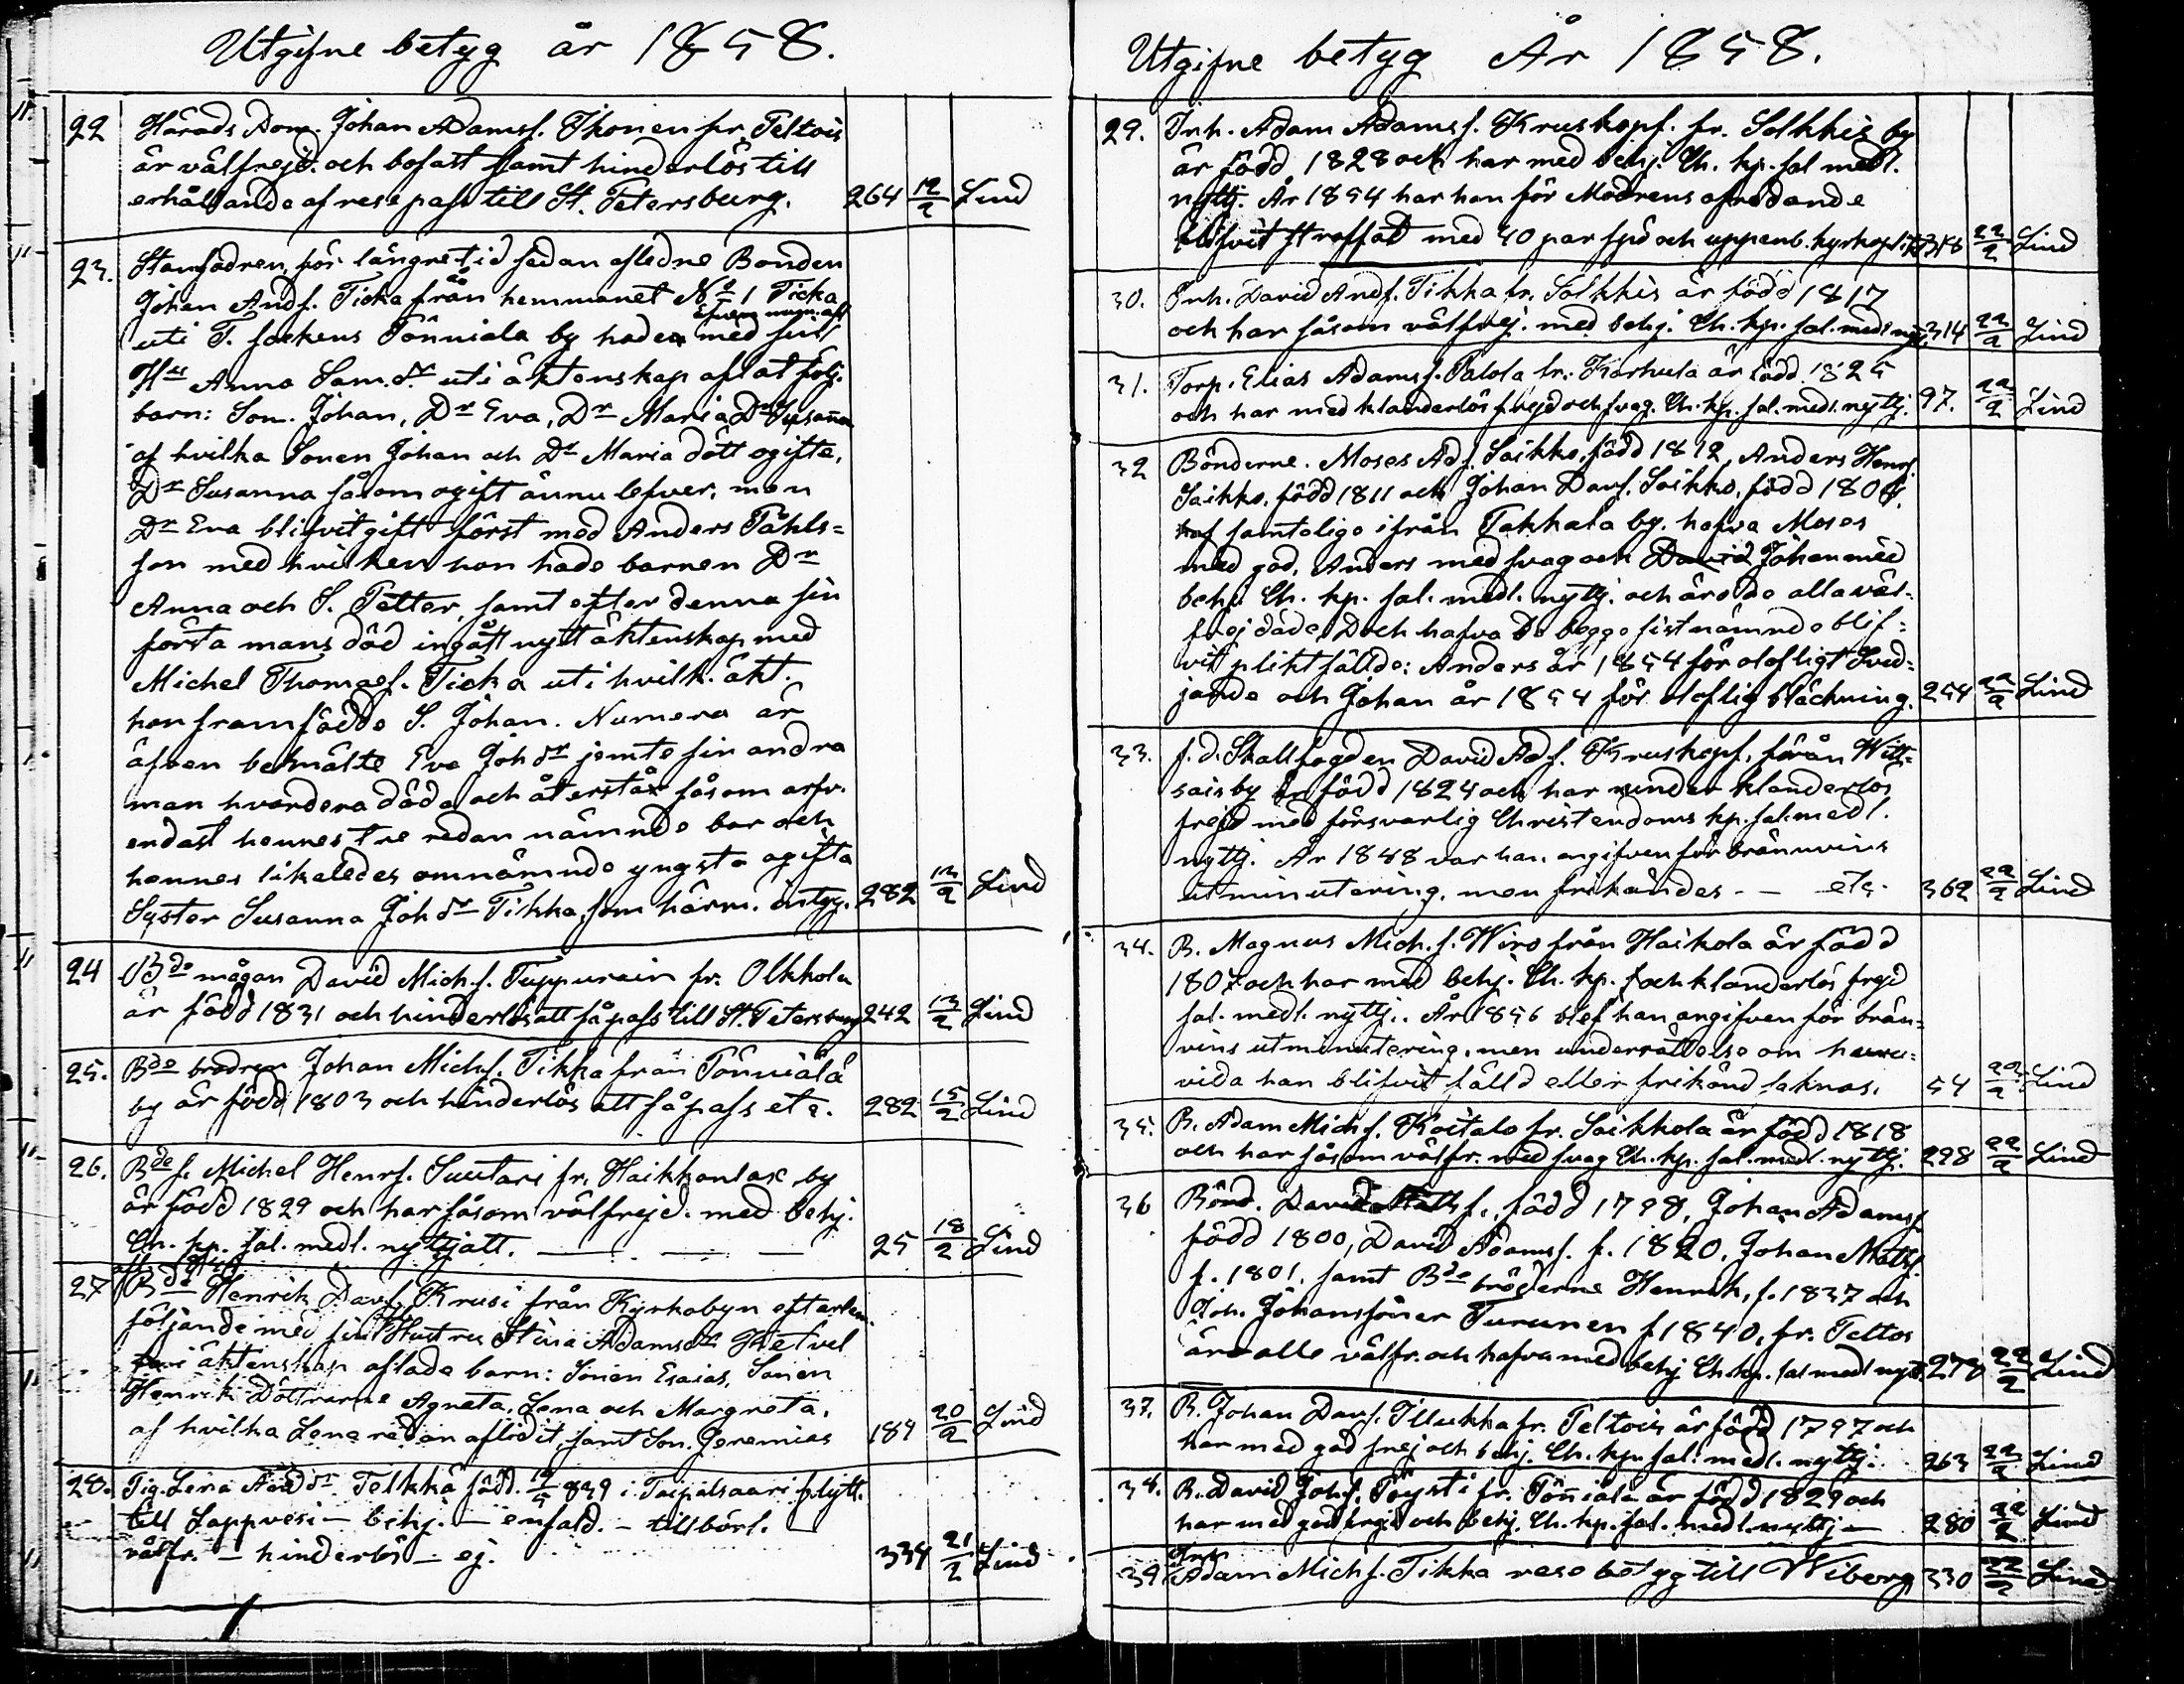 Utgifne betyg år 1858.
22 Härads Dom. Johan Adamsf. Ihonen fr. Peltois
är välfrejd. och bofatt samt hinderlös till
erhållande af respass till St. Petersburg. 264 12/2 Lind
23. Stamfadren, för längre tid sedan aflidne Bonden
Johan Andf. Ticka från hemmanet No 1 Ticka
uti T. sockens Pönniälä by hade med sin
Hu Anna Sam.dr uti äktenskap aflat följ.
barn: Son. Johan, Dr Eva, Dr Maria Dr Susanna
af hvilka Sonen Johan och Dr Maria dött ogifte,
Dr Susanna såsom ogift ännu lefver, men
Dr Eva blifvit gift först med Anders Påhls=
son med hvilken hon hade barnen Dr
Anna och S. Petter, samt efter denna sin
första mans död ingått nytt äktenskap med
Michel Thomasf. Ticka uti hvilk. äkt.
hon framfödde S. Johan. Numera är
äfven bemälte Eva Joh dr jemte sin andra
man hvardera döda och återstår såsom arfv.
endast hennes tre redan nämnde bar och
hennes likaledes omnämnde yngsta ogifta
Syster Susanna Joh dr Tikka, som härm. intyg. 282 13/2 Lind
24 Bde mågen David Mich.f. Tuppurain fr. Olkkola
är född 1831 och hinderlös att få pass till St. Petersburg 242 13/2 Lind
25. Bde brodren Johan Michf. Tikka från Pönniälä
by är född 1803 och hinderlös att få pass etc. 282 15/2 Lind
26. Bde f. Michel Henrf. Suutari fr. Haikkanlax by
är född 1829 och har såsom välfrejd. med behj.
Ch. kp. sal. medl. nyttjatt. — — — 25 18/2 Lind
27 Bde Henrik Davf. Krusi från Kyrkobyn efterlem.
följande med sin Hustru Stina Adamsdr Hietvel
i äktenskap aflade barn: Sonen Esaias, Sonen
Henrik Döttrarne Agneta, Lena och Margreta,
af hvilka Lena redan aflidit, samt Son. Jeremias 184 20/2 Lind
28. Pig. Lena And dr Pelkkä född. 839 i Taipalsaari flytt.
till Lappvesi — behj. — enfald. — tillbörl. —
välfr. — hinderlös — ej. 334 21/2 Lind
Utgifne betyg År 1858.
29. Inh. Adam Adamsf. Kruskopf. fr. Solkkis by
är född 1828 och har med behj. Ch. kp. sal medl.
nyttj. År 1854 har han för Modrens ofredande
blifvit straffad med 40 par spö och uppenb. kyrkopl. 318 22/2 Lind
30. Inh. David Andf. Tikka fr. Solkkis är född 1817
och har såsom välfrej. med behj. Ch. kp. sal. medl nyt. 314 22/2 Lind
31. Torp. Elias Adamsf. Palola fr. Karhula är född 1825
och har med klanderlös frejd och svag. Ch. kp. sal. medl. nyttj. 97. 22/2 Lind
32 Bönderne. Moses Adf. Saikko, född 1812, Anders Henrf.
Saikko, född 1811 och Johan Davf. Saikko, född 1808.
samtelige ifrån Takkala by. hafva Moses
med god, Anders med svag och David Johan med
behj Ch. kp. sal. medl. nyttj. och äro de alla väl-
frejdade, Doch hafva de begge sistnämnde blif=
vit pliktfällde: Anders år 1854 för olofligt sved=
jande och Johan år 1854 för oloflig bläckning. 254 22/2 Lind
33. f. d. Skallfogden David Adf. Kruskopf. från Witt=
sais by är född 1824 och har under klanderlös
frejd med försvarlig Christendoms kp. sal. medl.
nyttj. År 1848 var han angifven för brännvins
utminutering, men frikändes — — etc. 362 22/2 Lind
34. B. Magnus Mich. f. Wiro från Haikola är född
1807 och har med behj. Ch. kp. och klanderlös frejd
sal. medl. nyttj.. År 1856 blef han angifven för brän=
vins utminutering, men underrättelse om huru=
vida han blifvit fälld eller frikänd saknas. 54 22/2 Lind
35. B. Adam Michf. Koitalo fr. Saikkola är född 1818
och har såsom välfr. med svag Ch. kp. sal. medl. nyttj. 298 22/2 Lind
36 Bönd. David f., född 1798, Johan Adamsf
född 1800, David Adamsf. f. 1820, Johan Mattsf.
f. 1801. samt Bde bröderne Henrik, f. 1837 och
Joh. Johansföner Turunen f. 1840, fr. Peltos
äro alle välfr. och hafva med behj Ch. kp. sal medl nyt. 22/2 Lind
37. B. Johan Davf. Illukka fr. Peltois är född 1797 och
har med god frej och behj. Ch. kp. sal. medl. nyttj. 263 22/2 Lind
38. B. David Johf. Pöysti fr. Pönniälä är född 1829 och
har med god frejd och behj. Ch. kp. sal. medl. nyttj — 280 22/2 Lind
39 Inh Adam Michf. Tikka rese betyg till Wiborg 330 22/2 Lind